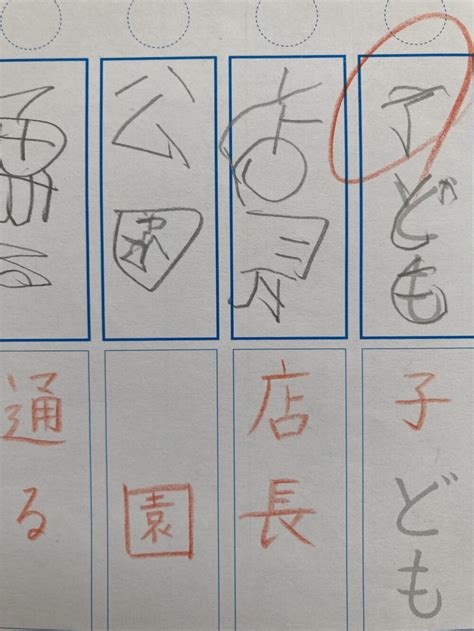 子ども
店長
公園
通る
子ども
店長
園
通る